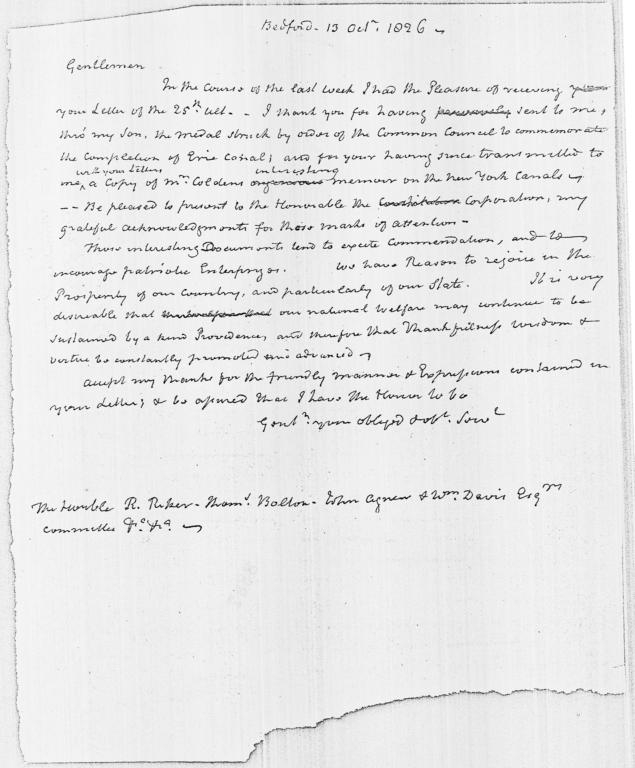 Bedford - 13 Octr. 1826
Gentlemen
In the Course of the last week I had the Pleasure of receiving
your Letter of the 25th ult. - I thank you for having sent to me,
thro' my Son, the medal struck by order of the Common Council to commemorate
the Completion of Erie Canal; and for your having since transmitted to
with your Letters interesting
me, a Copy of Mr. Coldens memoir on the New York Canals
-- Be pleased to present to the Honorable the Corporation, my
grateful acknowledgments for those marks of attention -
Those interesting Documents tend to excite Commendation, and to
encourage patriotic Enterprizes. We have Reason to rejoice in the
Prosperity of our Country, and particularly of our State. It is very
desireable that our national welfare may continue to be
sustained by a kind Providence, and therefore that Thankfulness wisdom &
virtue be constantly promoted and advanced
accept my thanks for the friendly manner & Expressions contained in
your Letter; & be assured that I have the Honor to be
Gentn. your obliged & obt. Servt
The Honble R. Riker - Thoms. Bolton - John Agnew & Wm. Davis Esqrs
Committee &c. &c.